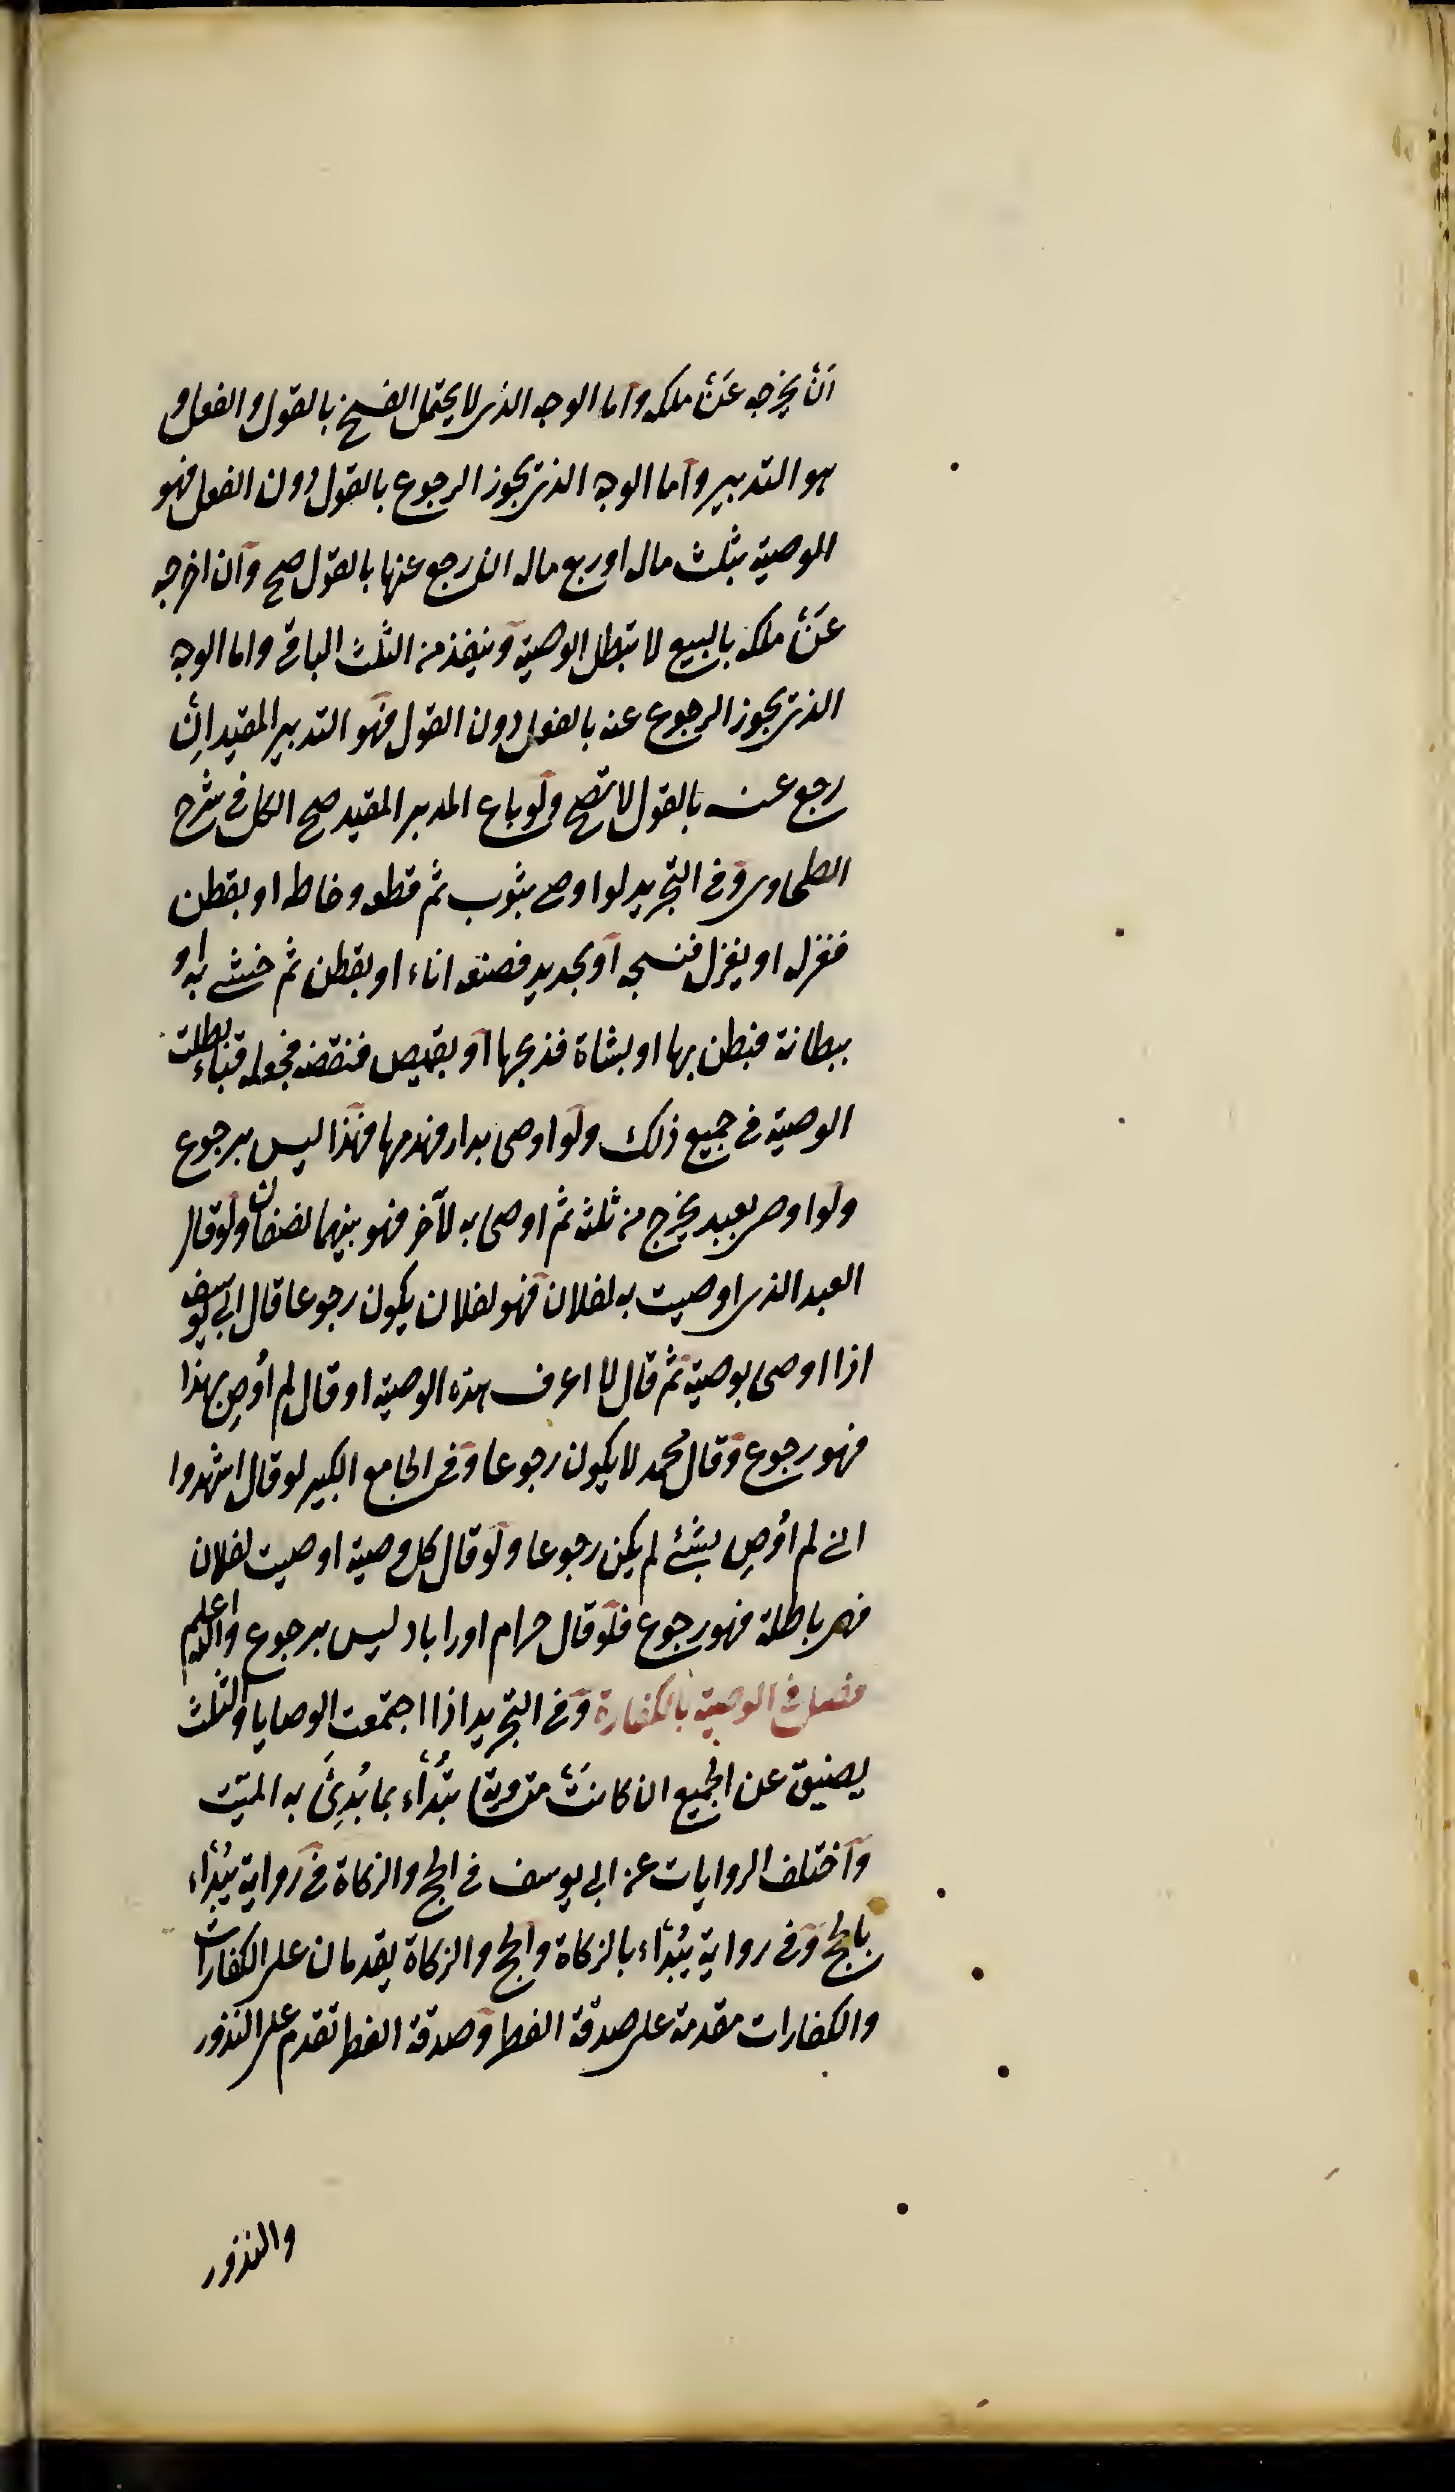 اَنْ يخرجه عَنْ ملكه واما الوجه الذى لا يحتمل الفسخ بالقول والفعل و
هو التدبير واما الوجه الذى يجوز الرجوع بالقول دون الفعل فهو
الوصية بثلث ماله او ربع ماله ان رجع عنها بالقول صح وان اخرجه
عَنْ ملكه بالبيع لا تبطل الوصية وينفذ من الثلث الباقى واما الوجه
الذى يجوز الرجوع عنه بالفعل دون القول فهو التدبير المقيد اِنْ
رجع عنه بالقول لا تصح ولو باع المدبر المقيد صح الكل فى شرح
الطحاوى وفى التجريد لو اوصى بثوب ثم قطعه وخاطه او بقطن
فغزله او بغزل فنسجه او بحديد فصنعه اناء او بقطن ثم حشى به او
ببطانة فبطن بها او بشاة فذبحها او بقميص فنقضه فجعله قباء بطلت
الوصية فى جميع ذلك ولو اوصى بدار فهدمها فهذا ليس برجوع
ولو اوصى بعبد يخرج من ثلثه ثم اوصى به لآخر فهو بينهما نصفان ولو قال
العبد الذى اوصيت به لفلان فهو لفلان يكون رجوعا قال ابى يوسف
اذا اوصى بوصية ثم قال لا اعرف هذه الوصية او قال لم اُوصِ بهذا
فهو رجوع وقال محمد لا يكون رجوعا وفى الجامع الكبير لو قال اشهدوا
انى لم اُوصِ بشئ لم يكن رجوعا ولو قال كل وصية اوصيت لفلان
فهى باطلة فهو رجوع فلو قال حرام او رابا د ليس برجوع والله اعلم
فصل فى الوصية بالكفارة وفى التجريد اذا اجتمعت الوصايا والثلث
يضيق عن الجميع ان كانَتْ متـ بَتُدْأء بما بُدِئَ به الميّت
واختلف الروايات عن ابى يوسف فى الحج والزكاة فى رواية يُبْدَاء
بالحج وفى رواية يُبْدَاء بالزكاة والحج والزكاة يقدمان على الكفارات
والكفارات مقدمة على صدقة الفطر وصدقة الفطر تقدم على النذور
والنذور